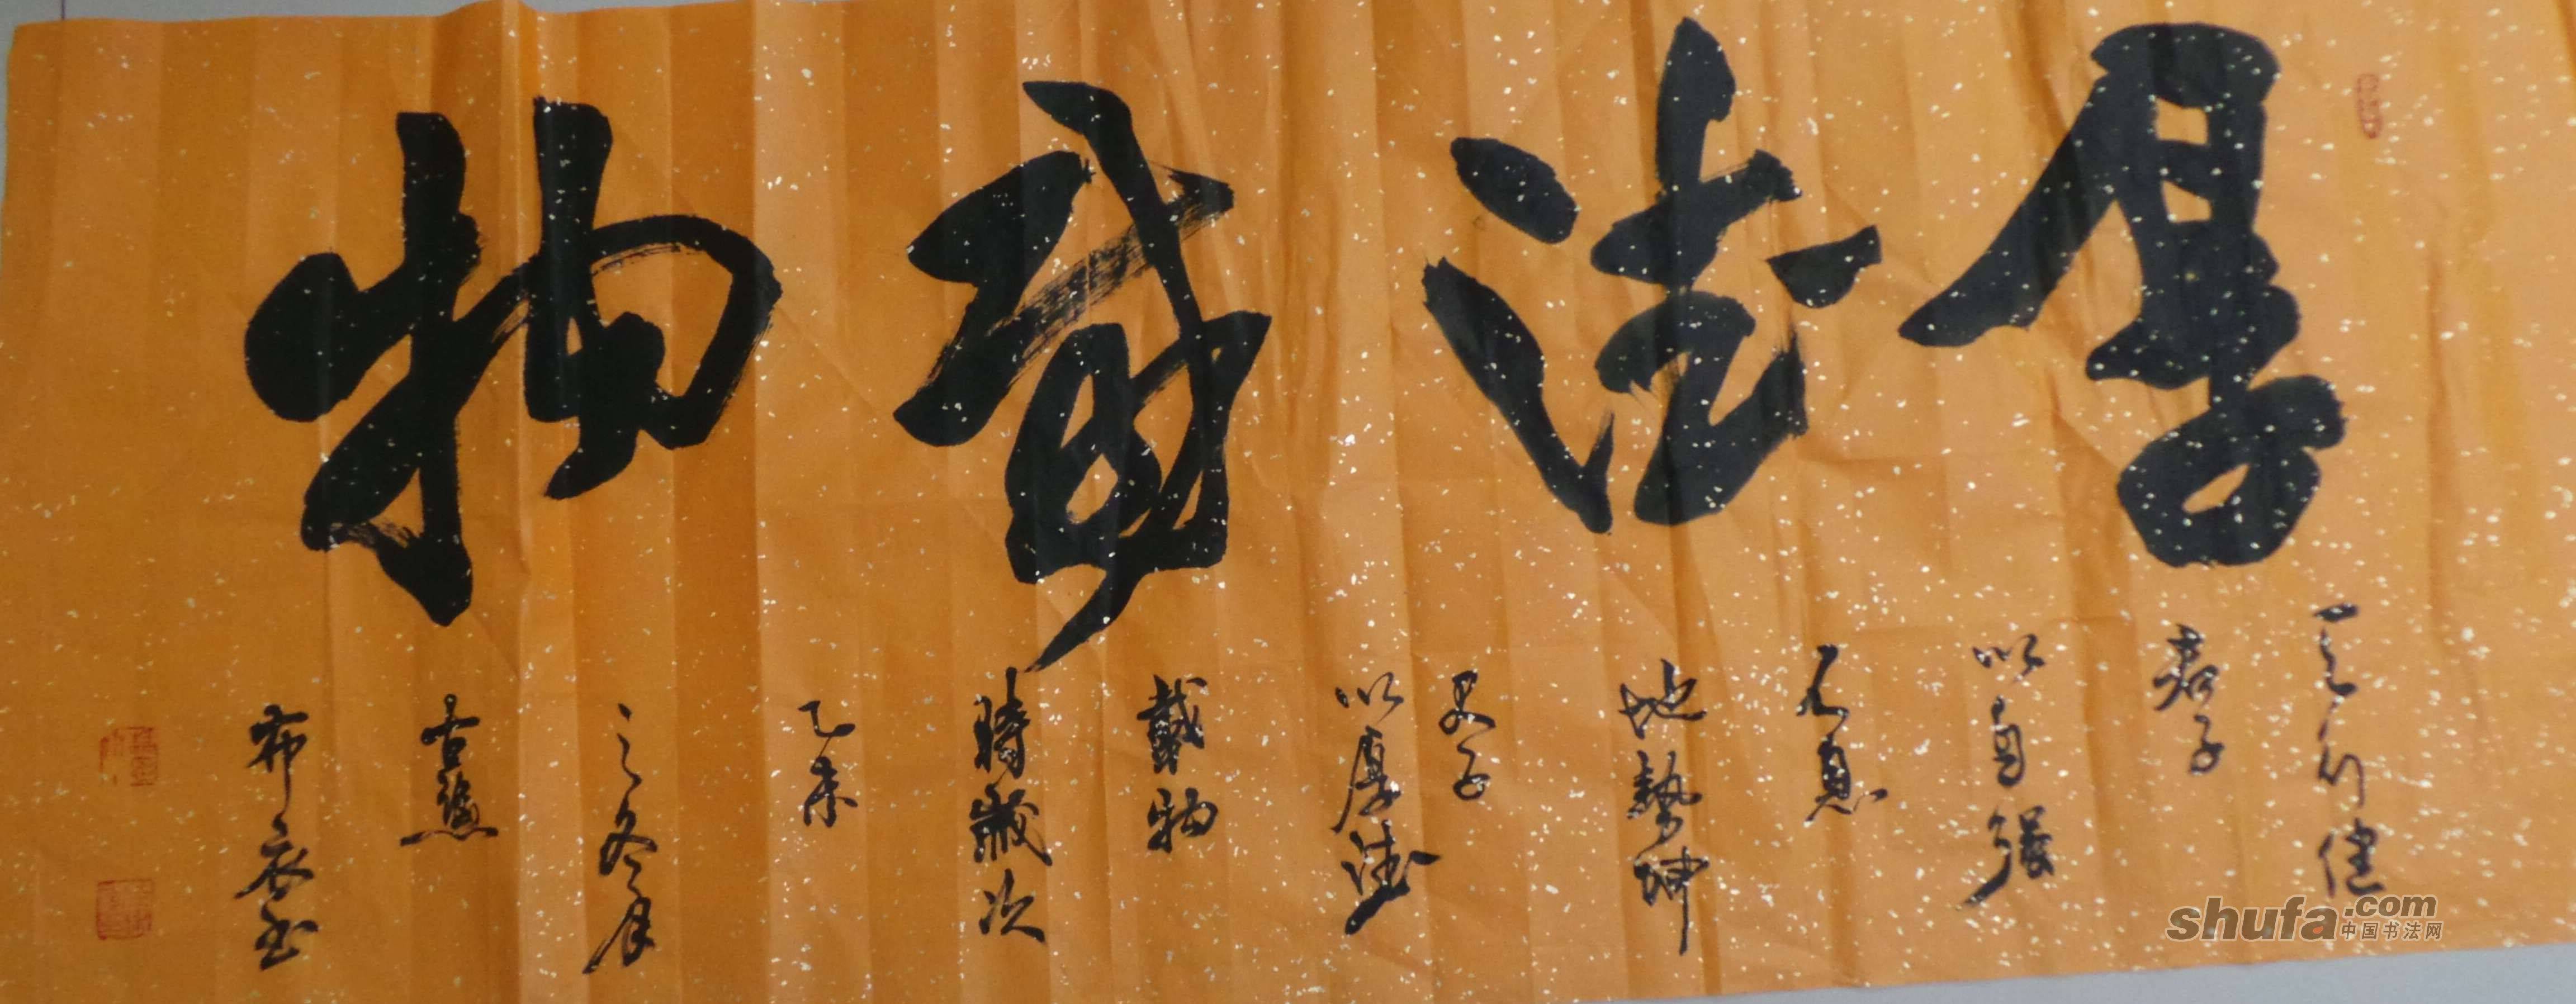 厚德载物
天行健
君子
以自强
不息
地勢坤
君子
以厚德
載物
時歲次
乙未
之冬月
古燕
布衣书
shufa.com
中国书法网